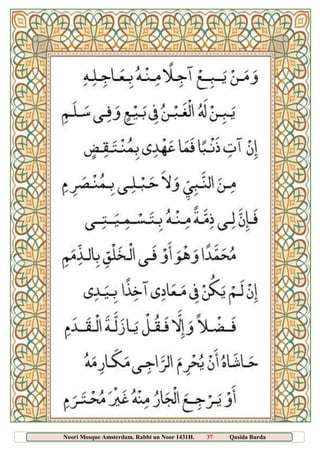 وَمَنْ يَبِعْ آجِلًا مِنْهُ بِعَاجِلِهِ
يَبِنْ لَهُ الْغَبْنُ فِي بَيْعٍ وَفِي سَلَمِ
إِنْ آتِ ذَنْبًا فَمَا عَهْدِي بِمُنْتَقِضٍ
مِنَ النَّبِيِّ وَلَا حَبْلِي بِمُنْصَرِمِ
فَإِنَّ لِي ذِمَّةً مِنْهُ بِتَسْمِيَتِي
مُحَمَّدًا وَهْوَ أَوْفَى الْخَلْقِ بِالذِّمَمِ
إِنْ لَمْ يَكُنْ فِي مَعَادِي آخِذًا بِيَدِي
فَضْلًا وَإِلَّا فَقُلْ يَا زَلَّةَ الْقَدَمِ
حَاشَاهُ أَنْ يُحْرِمَ الرَّاجِي مَكَارِمَهُ
أَوْ يَرْجِعَ الْجَارُ مِنْهُ غَيْرَ مُحْتَرَمِ
Noori Mosque Amsterdam. Rabbi un Noor 1431H. 37 Qasida Burda